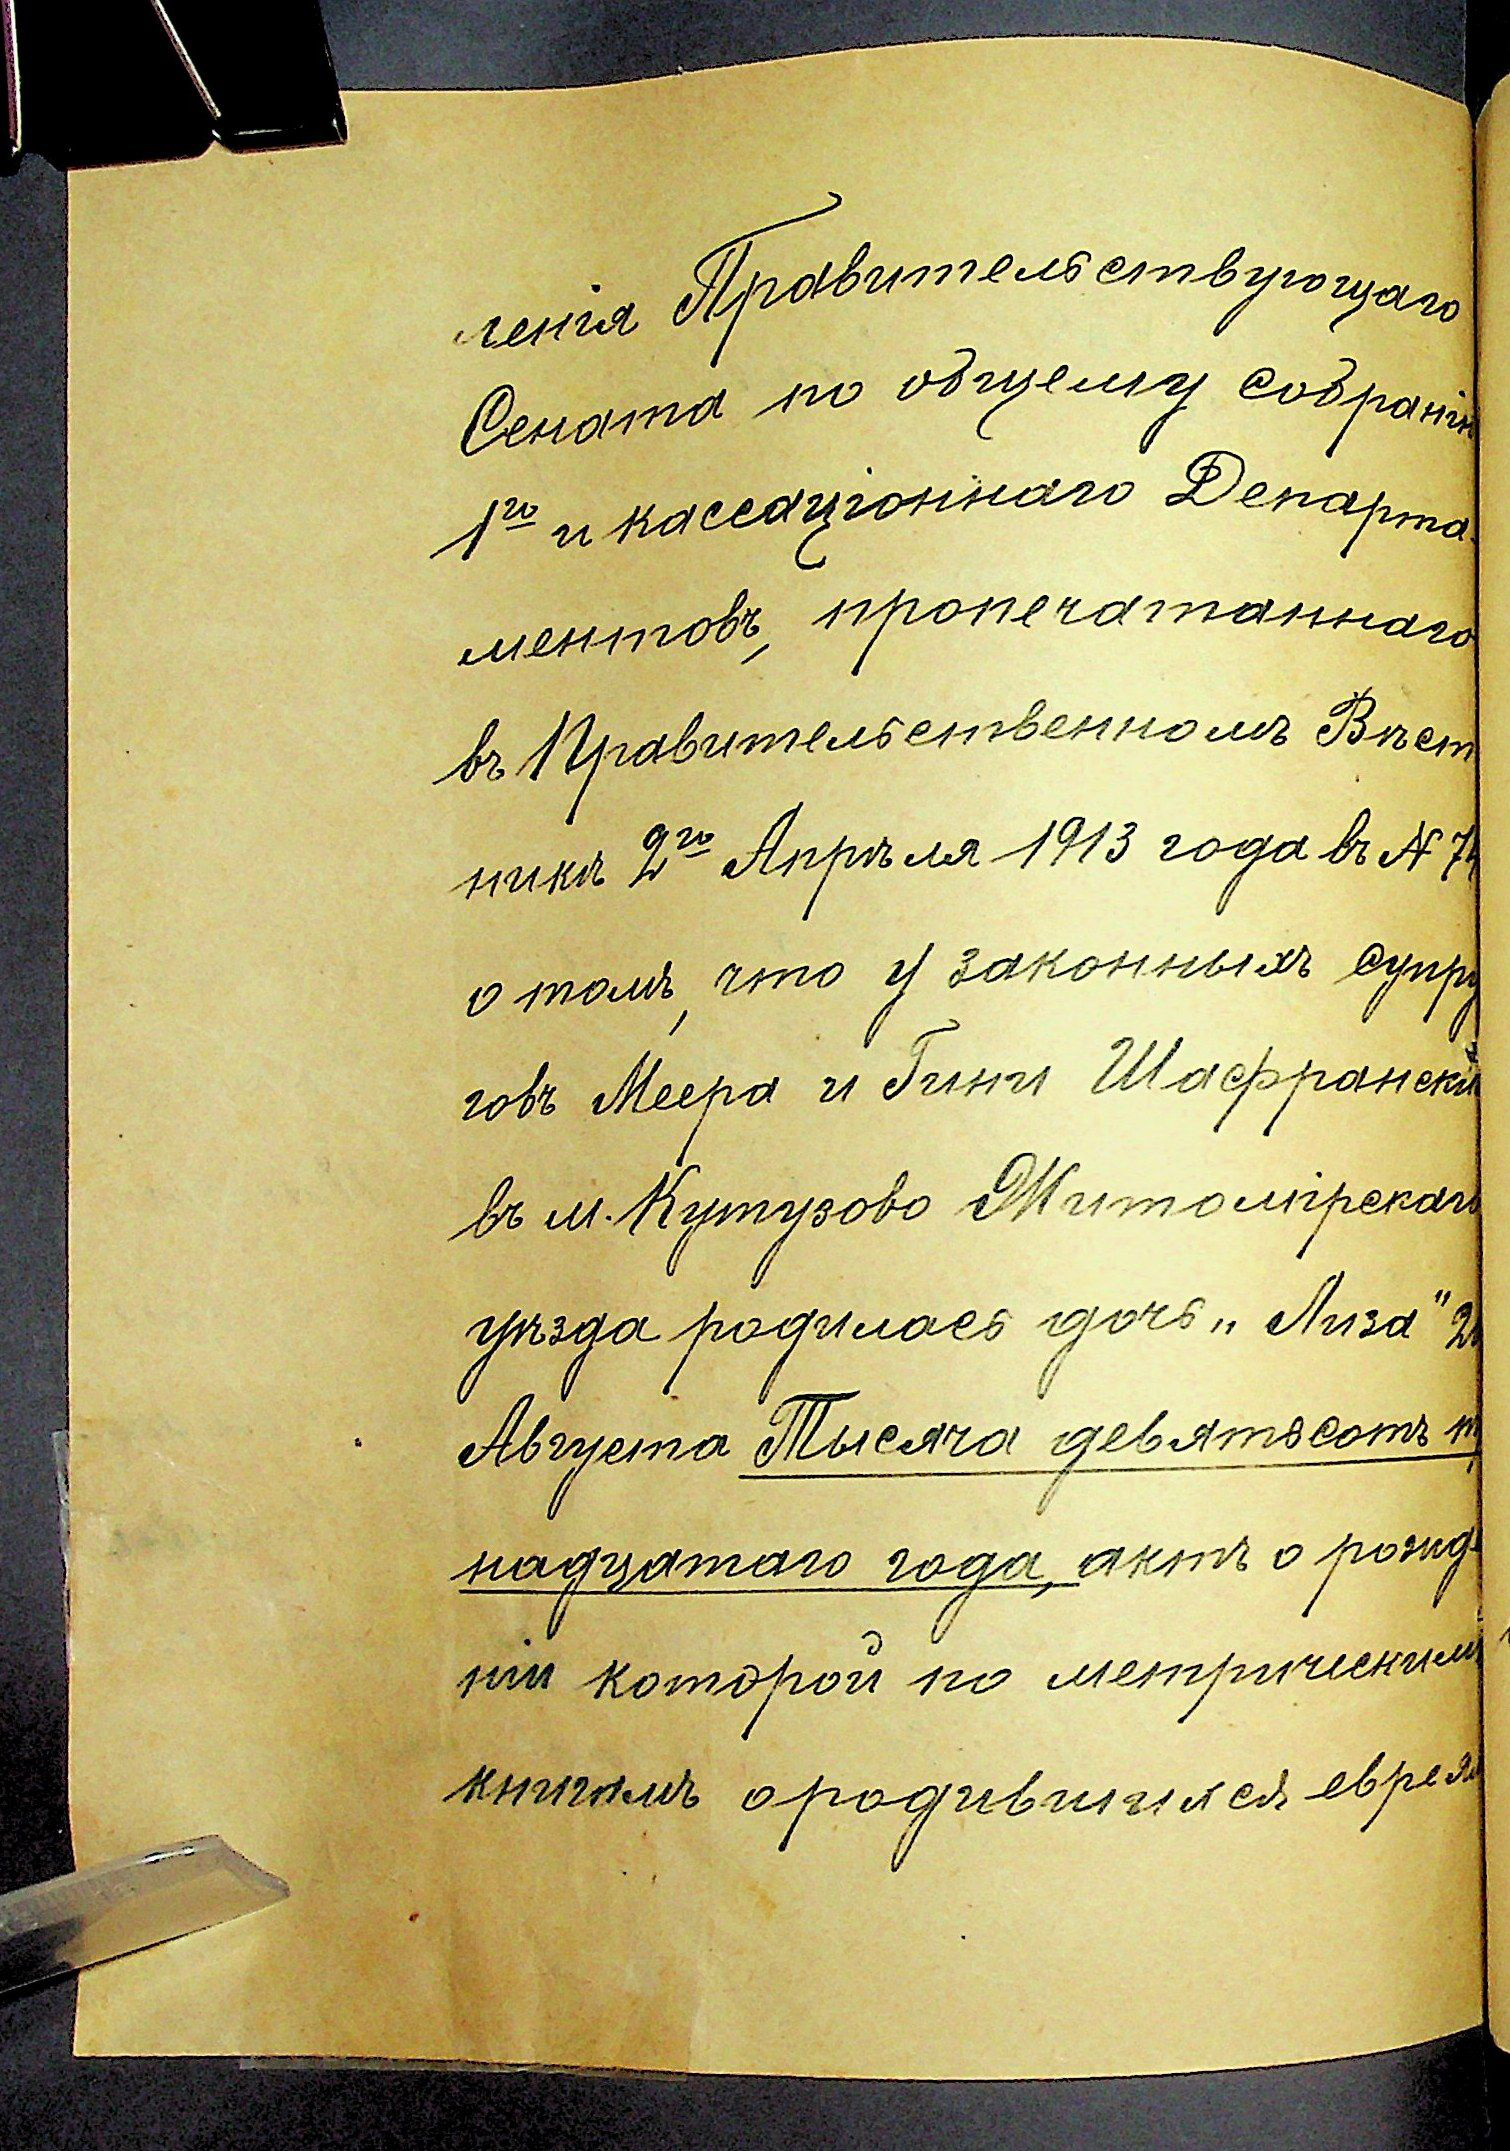 ленія Правительствующаго
Сената по общему собранію
1го и кассаціоннаго Департа-
ментовъ, пропечатаннаго
въ Правительственномъ Вѣст
никѣ 2го Апрѣля 1913 года въ №
о томъ, что у законныхъ супру
говъ Меера и Гини Шафрански
въ м. Кутузово Житомірскаго
уѣзда родилась дочь „Лиза"
Августа Тысяча девятьсотъ
надцатаго года, актъ о рожде
ніи которой по метрическимъ
книгамъ о родившихся евреях